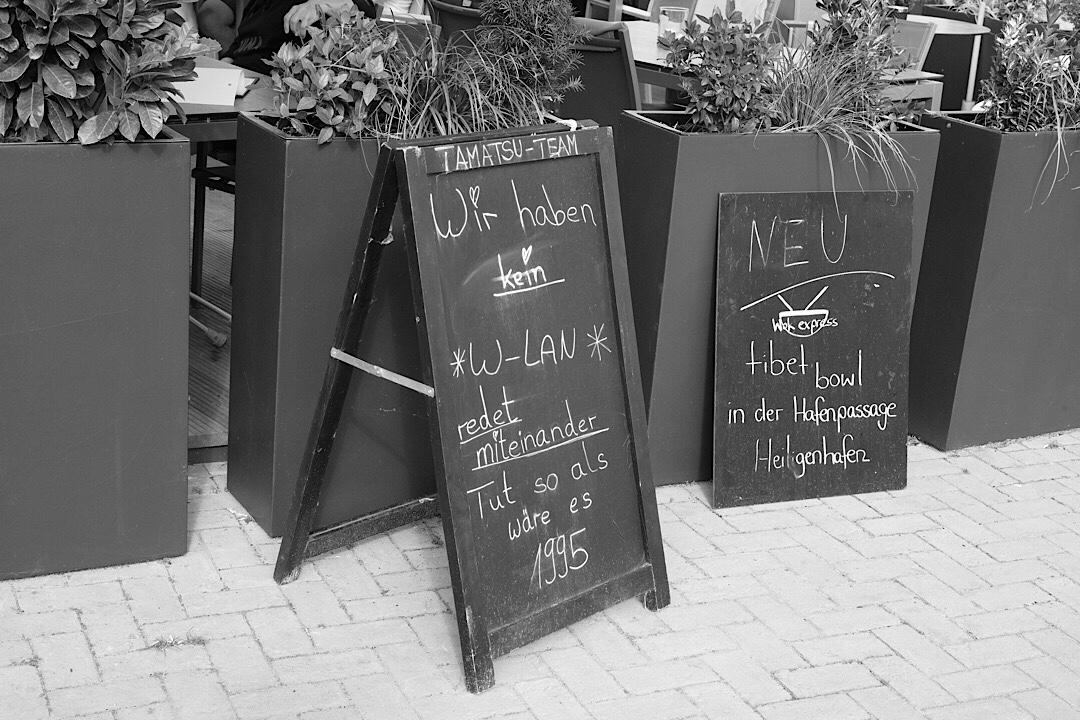 TAMATSU-TEAM
Wir haben
kein
*W-LAN*
redet
miteinander
Tut so als
wäre es
1995
NEU
Wok express
tibet
bowl
in der Hafenpassage
Heiligenhafen